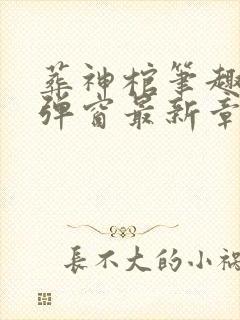 葬神棺筆趣
彈窗最新章
長不大的小禍